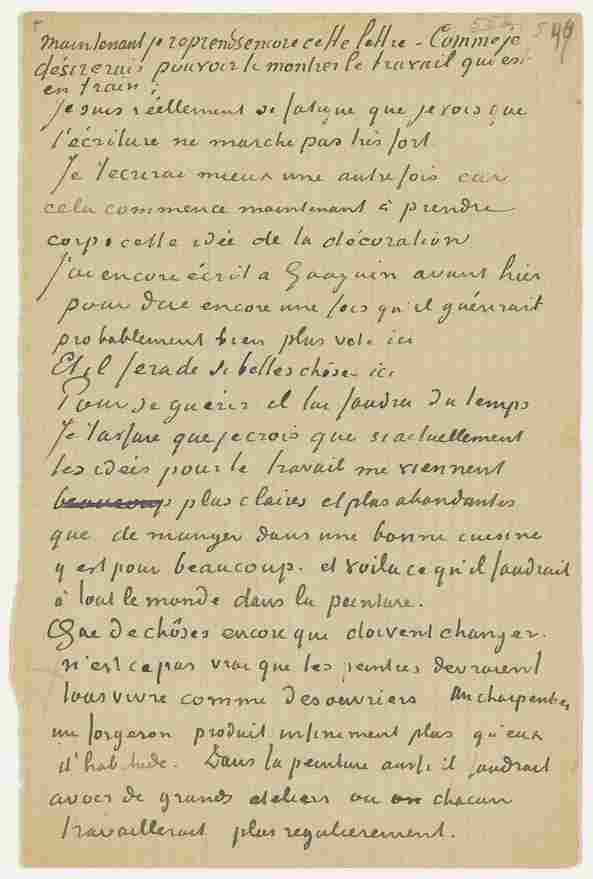 maintenant je reprends encore cette lettre - Comme je
désirerais pouvoir te montrer le travail qui est
en train;
Je suis réellement si fatigué que je vois que
l'écriture ne marche pas très fort.
Je t'ecrirai mieux une autre fois car
cela commence maintenant à prendre
corps cette idée de la décoration
J'ai encore écrit a Gauguin avant hier
pour dire encore une fois qu'il guérirait
probablement bien plus vite ici
Et il fera de si belles chôses ici
Pour se guérir il lui faudra du temps
Je t'assure que je crois que si actuellement
les idées pour le travail me viennent
beaucoup plus claires et plus abondantes
que de manger dans une bonne cuisine
y est pour beaucoup. et voila ce qu'il faudrait
à tout le monde dans la peinture.
Que de chôses encore qui doivent changer.
n'est ce pas vrai que les peintres devraient
tous vivre comme des ouvriers Un charpentier,
un forgeron produit infiniment plus qu'eux
d'habitude. Dans la peinture aussi il faudrait
avoir de grands ateliers ou chacun
travaillerait plus regulierement.